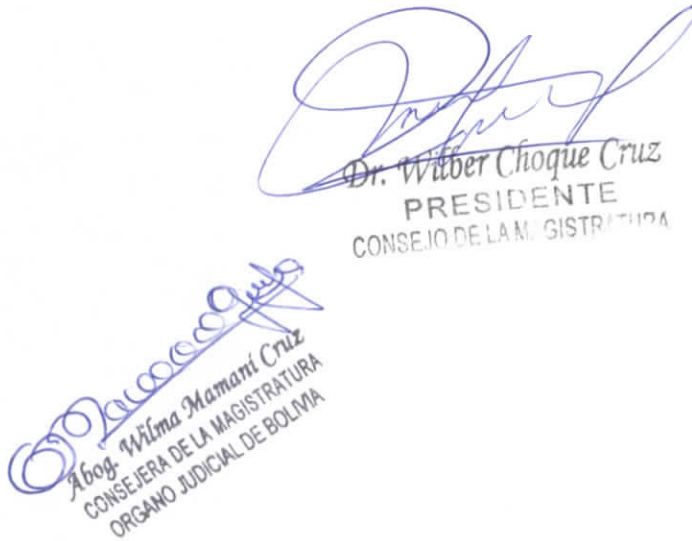 Dr. Wilber Choque Cruz
PRESIDENTE
CONSEJO DE LA MAGISTRATURA
Abog. Wilma Mamani Cruz
CONSEJERA DE LA MAGISTRATURA
ORGANO JUDICIAL DE BOLIVIA